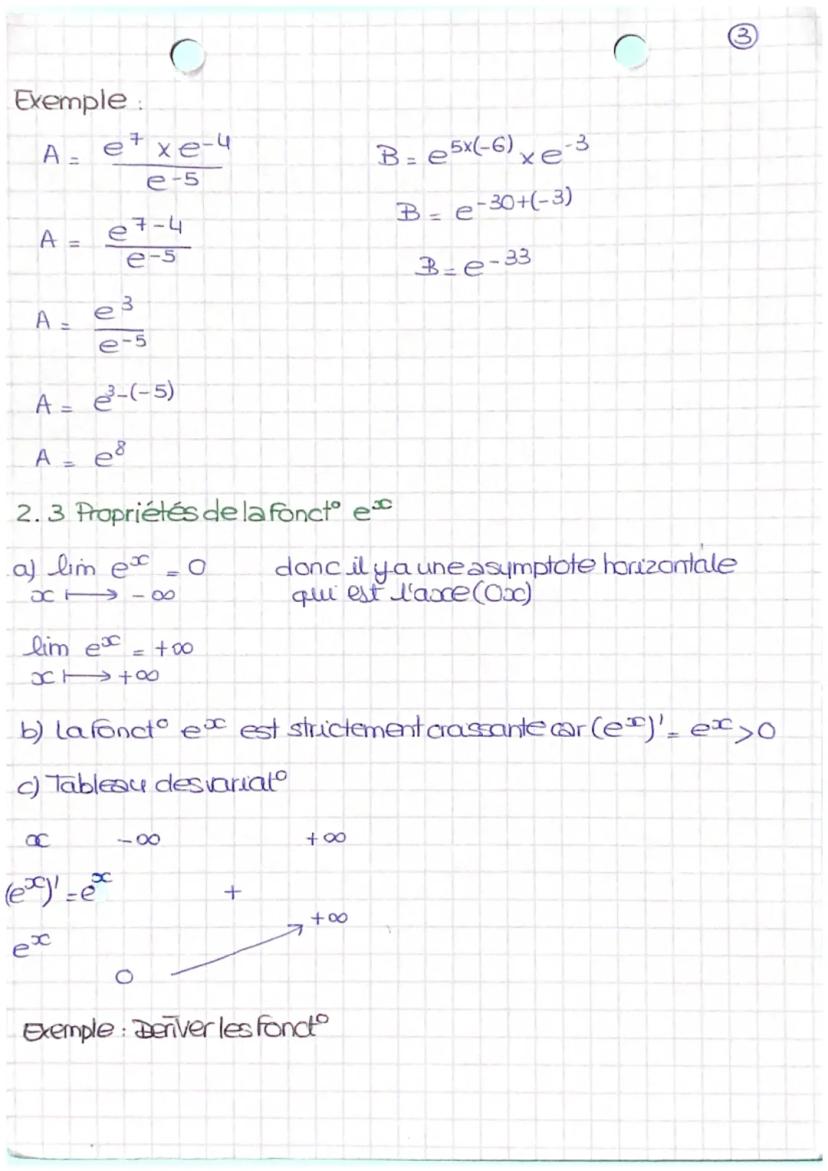 ③
Exemple :
A = e⁷ × e⁻⁴ / e⁻⁵
A = e⁷⁻⁴ / e⁻⁵
A = e³ / e⁻⁵
A = e³⁻⁽⁻⁵⁾
A = e⁸
B = e^5×(-6) × e⁻³
B = e⁻³⁰⁺⁽⁻³⁾
B = e⁻³³
2.3 Propriétés de la fonct° eˣ
a) lim eˣ = 0 donc il y a une asymptote horizontale
x ↦ -∞ qui est l'axe (Ox)
lim eˣ = +∞
x ↦ +∞
b) La fonct° eˣ est strictement crassante car (eˣ)' = eˣ > 0
c) Tableau des variat°
x -∞ +∞
(eˣ)' = eˣ +
+∞
eˣ
0
Exemple : Dériver les fonct°